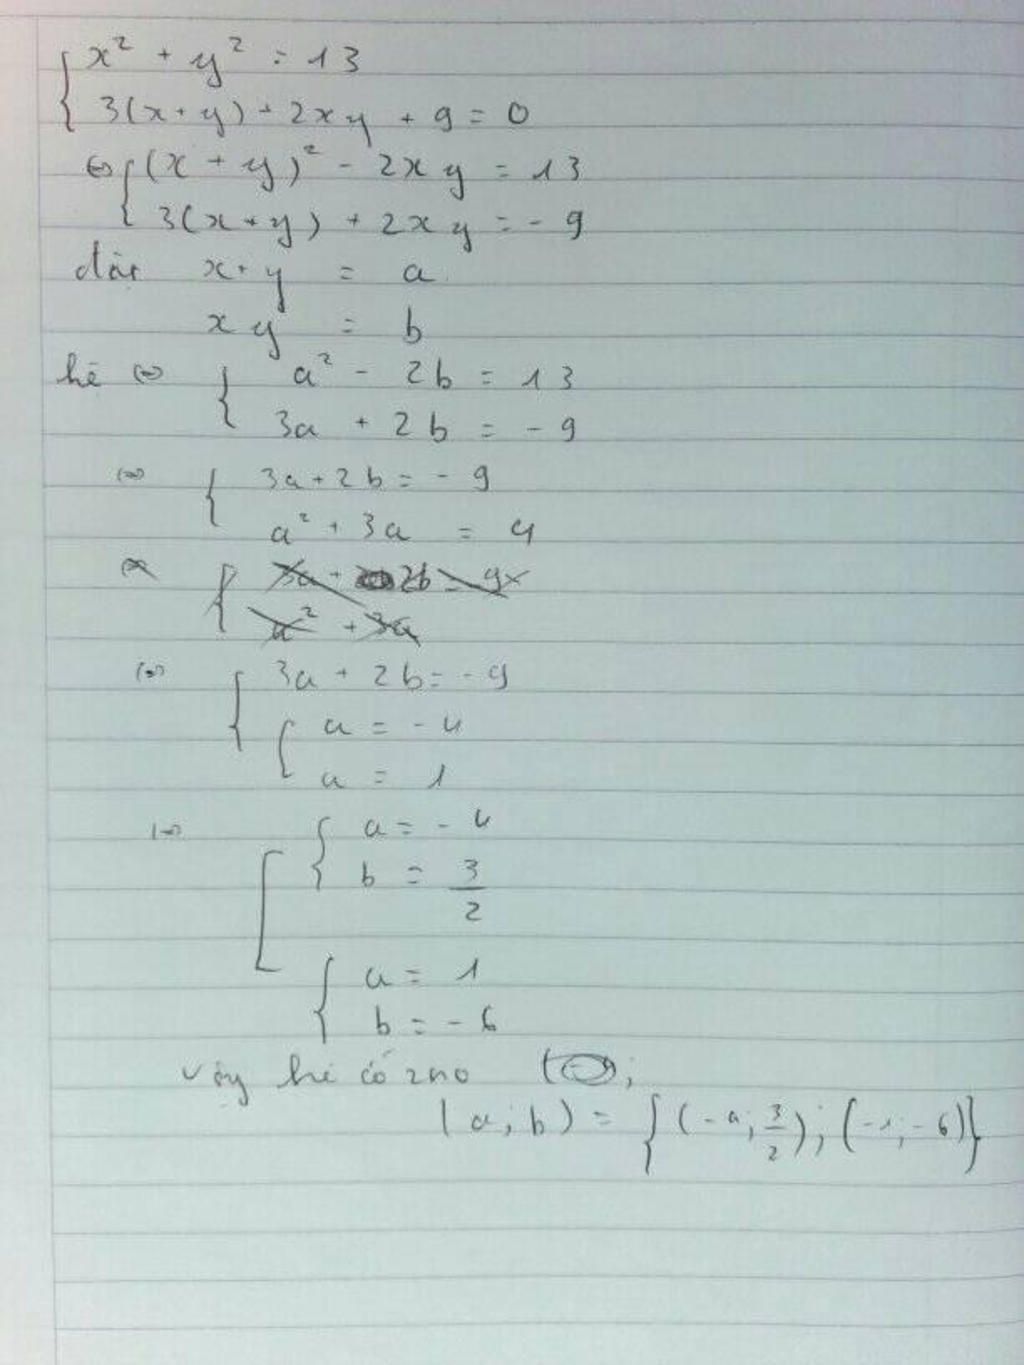 { x² + y² = 13
3(x+y) + 2xy + 9 = 0
⇔ { (x + y)² - 2xy = 13
3(x+y) + 2xy = - 9
đặt x+y = a
xy = b
hệ ⇔ { a² - 2b = 13
3a + 2b = - 9
⇔ { 3a+2b = - 9
a² + 3a = 4
⇔ { 3a + 2b = - 9
a² + 3a
⇔ { 3a + 2b = - 9
{ a = - 4
a = 1
⇔ [ { a = - 4
b = 3/2
{ a = 1
b = - 6
vậy hệ có 2no
(a; b) = { (-4; 3/2); (-1; -6) }